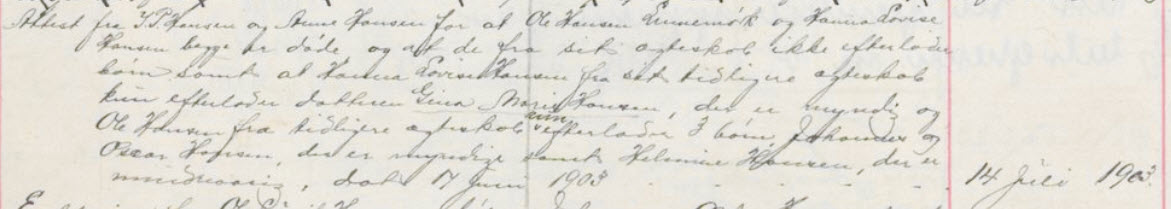 Attest fra I.P. Hansen og Anne Hansen for at Ole Hansen Ennemörk og Hanna Lovise
Hansen begge er døde og at de fra sit ægteskab ikke efterlader
børn samt at Hanna Lovise Hansen fra sit tidligere ægteskab
kun efterlader datteren Gina Marie Hansen, der er myndig og
Ole Hansen fra tidligere ægteskab kun efterlader 3 børn, Johannes og
Oscar Hansen, der er myndige samt Helmine Hansen, der er
mindreaarig, dat. 17 Juni 1903 14 Juli 1903.